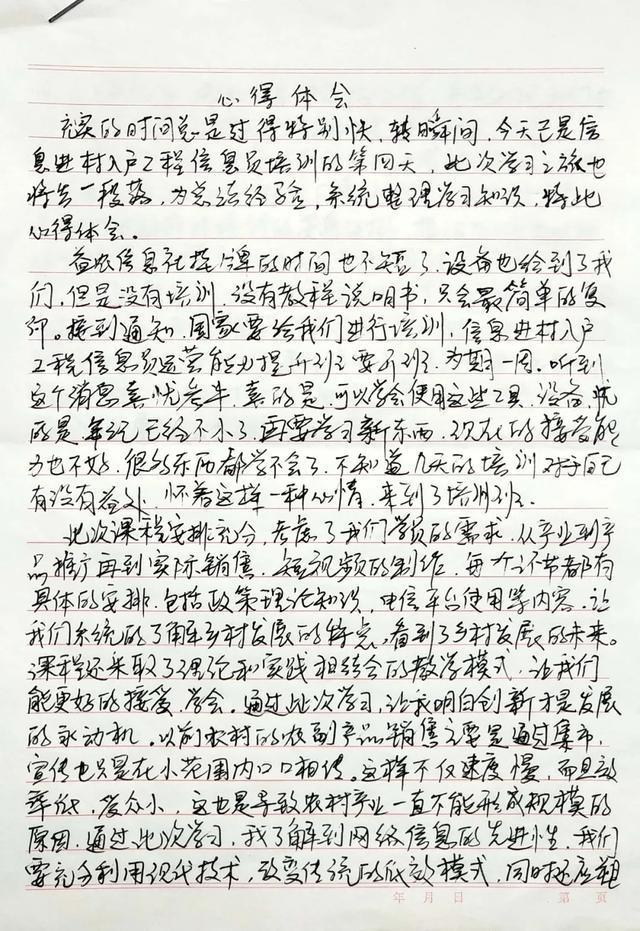 心得体会
充实的时间总是过得特别快，转瞬间，今天已是信
息进村入户工程信息员培训的第四天，此次学习之旅也
将告一段落，为总结经验，系统整理学习知识，特此
心得体会。
益农信息社挂牌的时间也不短了，设备也给到了我
们，但是没有培训，没有教程说明书，只会最简单的复
印。接到通知，国家要给我们进行培训，信息进村入户
工程信息员运营能力提升班要开班，为期一周。听到
这个消息喜忧参半，喜的是，可以学会使用这些工具、设备，忧
的是年纪已经不小了，再要学习新东西，现在的接受能
力也不好，很多东西都学不会了，不知道几天的培训对于自己
有没有益处，怀着这样一种心情，来到了培训班。
此次课程安排充分，考虑了我们学员的需求，从产业到产
品推广再到实际销售，短视频的制作，每个环节都有
具体的安排，包括政策理论知识，电信平台使用等内容，让
我们系统的了解乡村发展的特点，看到了乡村发展的未来。
课程还采取了理论和实践相结合的教学模式，让我们
能更好的接受、学会。通过此次学习，让我明白创新才是发展
的永动机。以前农村的农副产品销售主要是通过集市，
宣传也只是在小范围内口口相传。这样不仅速度慢，而且效
率低，受众小，这也是导致农村产业一直不能形成规模的
原因，通过此次学习，我了解到网络信息的先进性，我们
要充分利用现代技术，改变传统的低效模式，同时还应
年 月 日 第 页